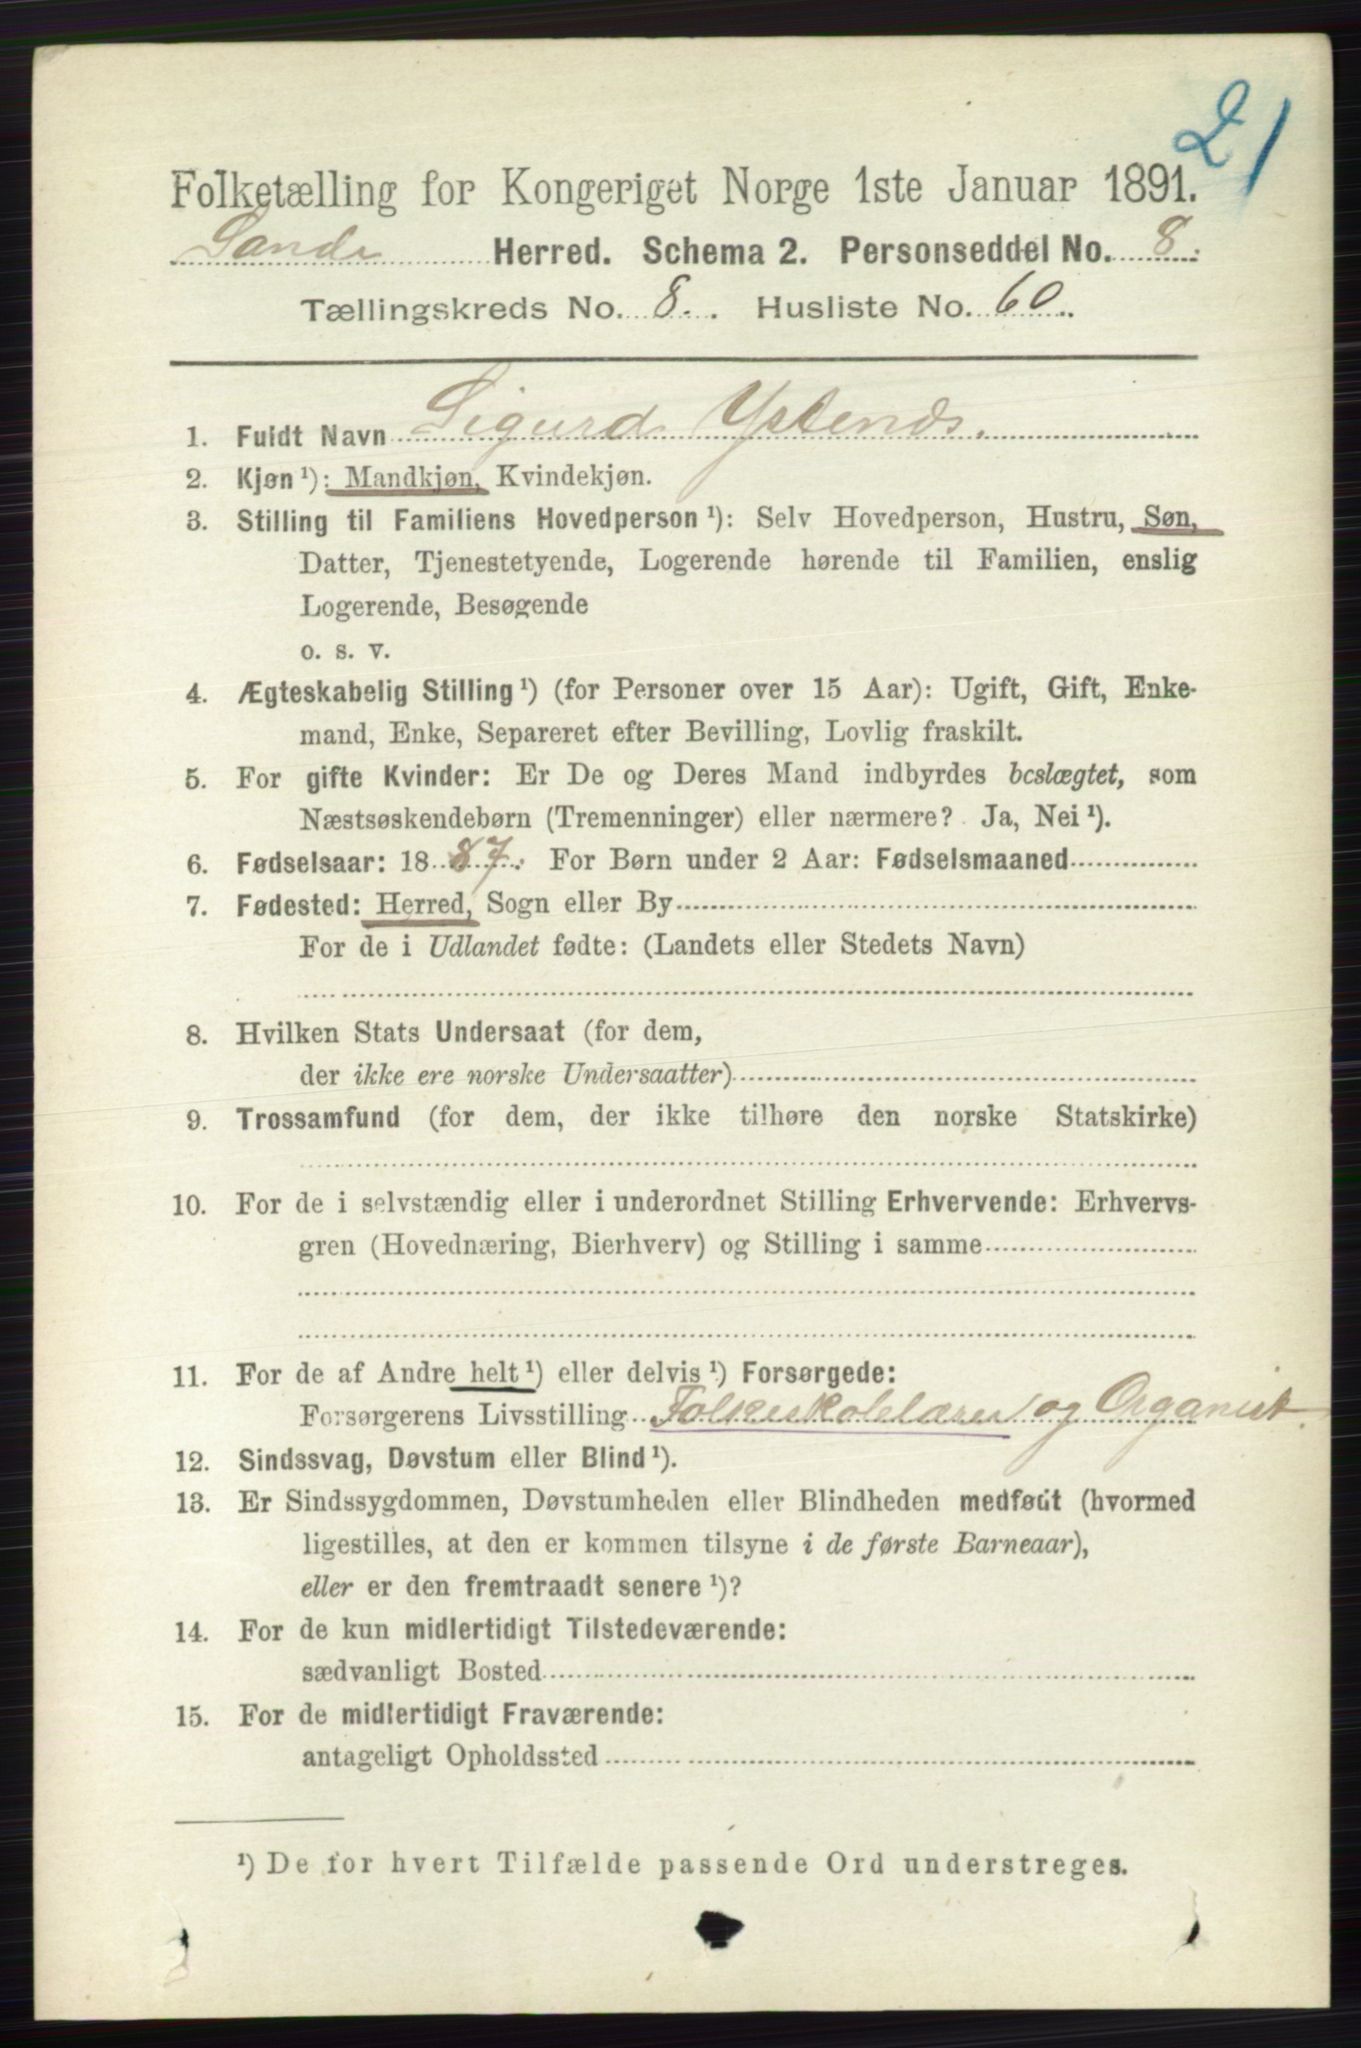 21
Folketælling for Kongeriget Norge 1ste Januar 1891.
Sande Herred. Schema 2. Personseddel No. 8.
Tællingskreds No. 8. Husliste No. 60.
1. Fuldt Navn Sigurd Ystenes.
2. Kjøn¹): Mandkjøn, Kvindekjøn.
3. Stilling til Familiens Hovedperson¹): Selv Hovedperson, Hustru, Søn,
Datter, Tjenestetyende, Logerende hørende til Familien, enslig
Logerende, Besøgende
o. s. v.
4. Ægteskabelig Stilling¹) (for Personer over 15 Aar): Ugift, Gift, Enke-
mand, Enke, Separeret efter Bevilling, Lovlig fraskilt.
5. For gifte Kvinder: Er De og Deres Mand indbyrdes beslægtet, som
Næstsøskendebørn (Tremenninger) eller nærmere? Ja, Nei¹).
6. Fødselsaar: 1887. For Børn under 2 Aar: Fødselsmaaned
7. Fødested: Herred, Sogn eller By
For de i Udlandet fødte: (Landets eller Stedets Navn)
8. Hvilken Stats Undersaat (for dem,
der ikke ere norske Undersaatter)
9. Trossamfund (for dem, der ikke tilhøre den norske Statskirke)
10. For de i selvstændig eller i underordnet Stilling Erhvervende: Erhvervs-
gren (Hovednæring, Bierhverv) og Stilling i samme
11. For de af Andre helt¹) eller delvis¹) Forsørgede:
Forsørgerens Livsstilling Folkeskolelærer og Organist.
12. Sindssvag, Døvstum eller Blind¹).
13. Er Sindssygdommen, Døvstumheden eller Blindheden medfødt (hvormed
ligestilles, at den er kommen tilsyne i de første Barneaar),
eller er den fremtraadt senere¹)?
14. For de kun midlertidigt Tilstedeværende:
sædvanligt Bosted
15. For de midlertidigt Fraværende:
antageligt Opholdssted
¹) De for hvert Tilfælde passende Ord understreges.